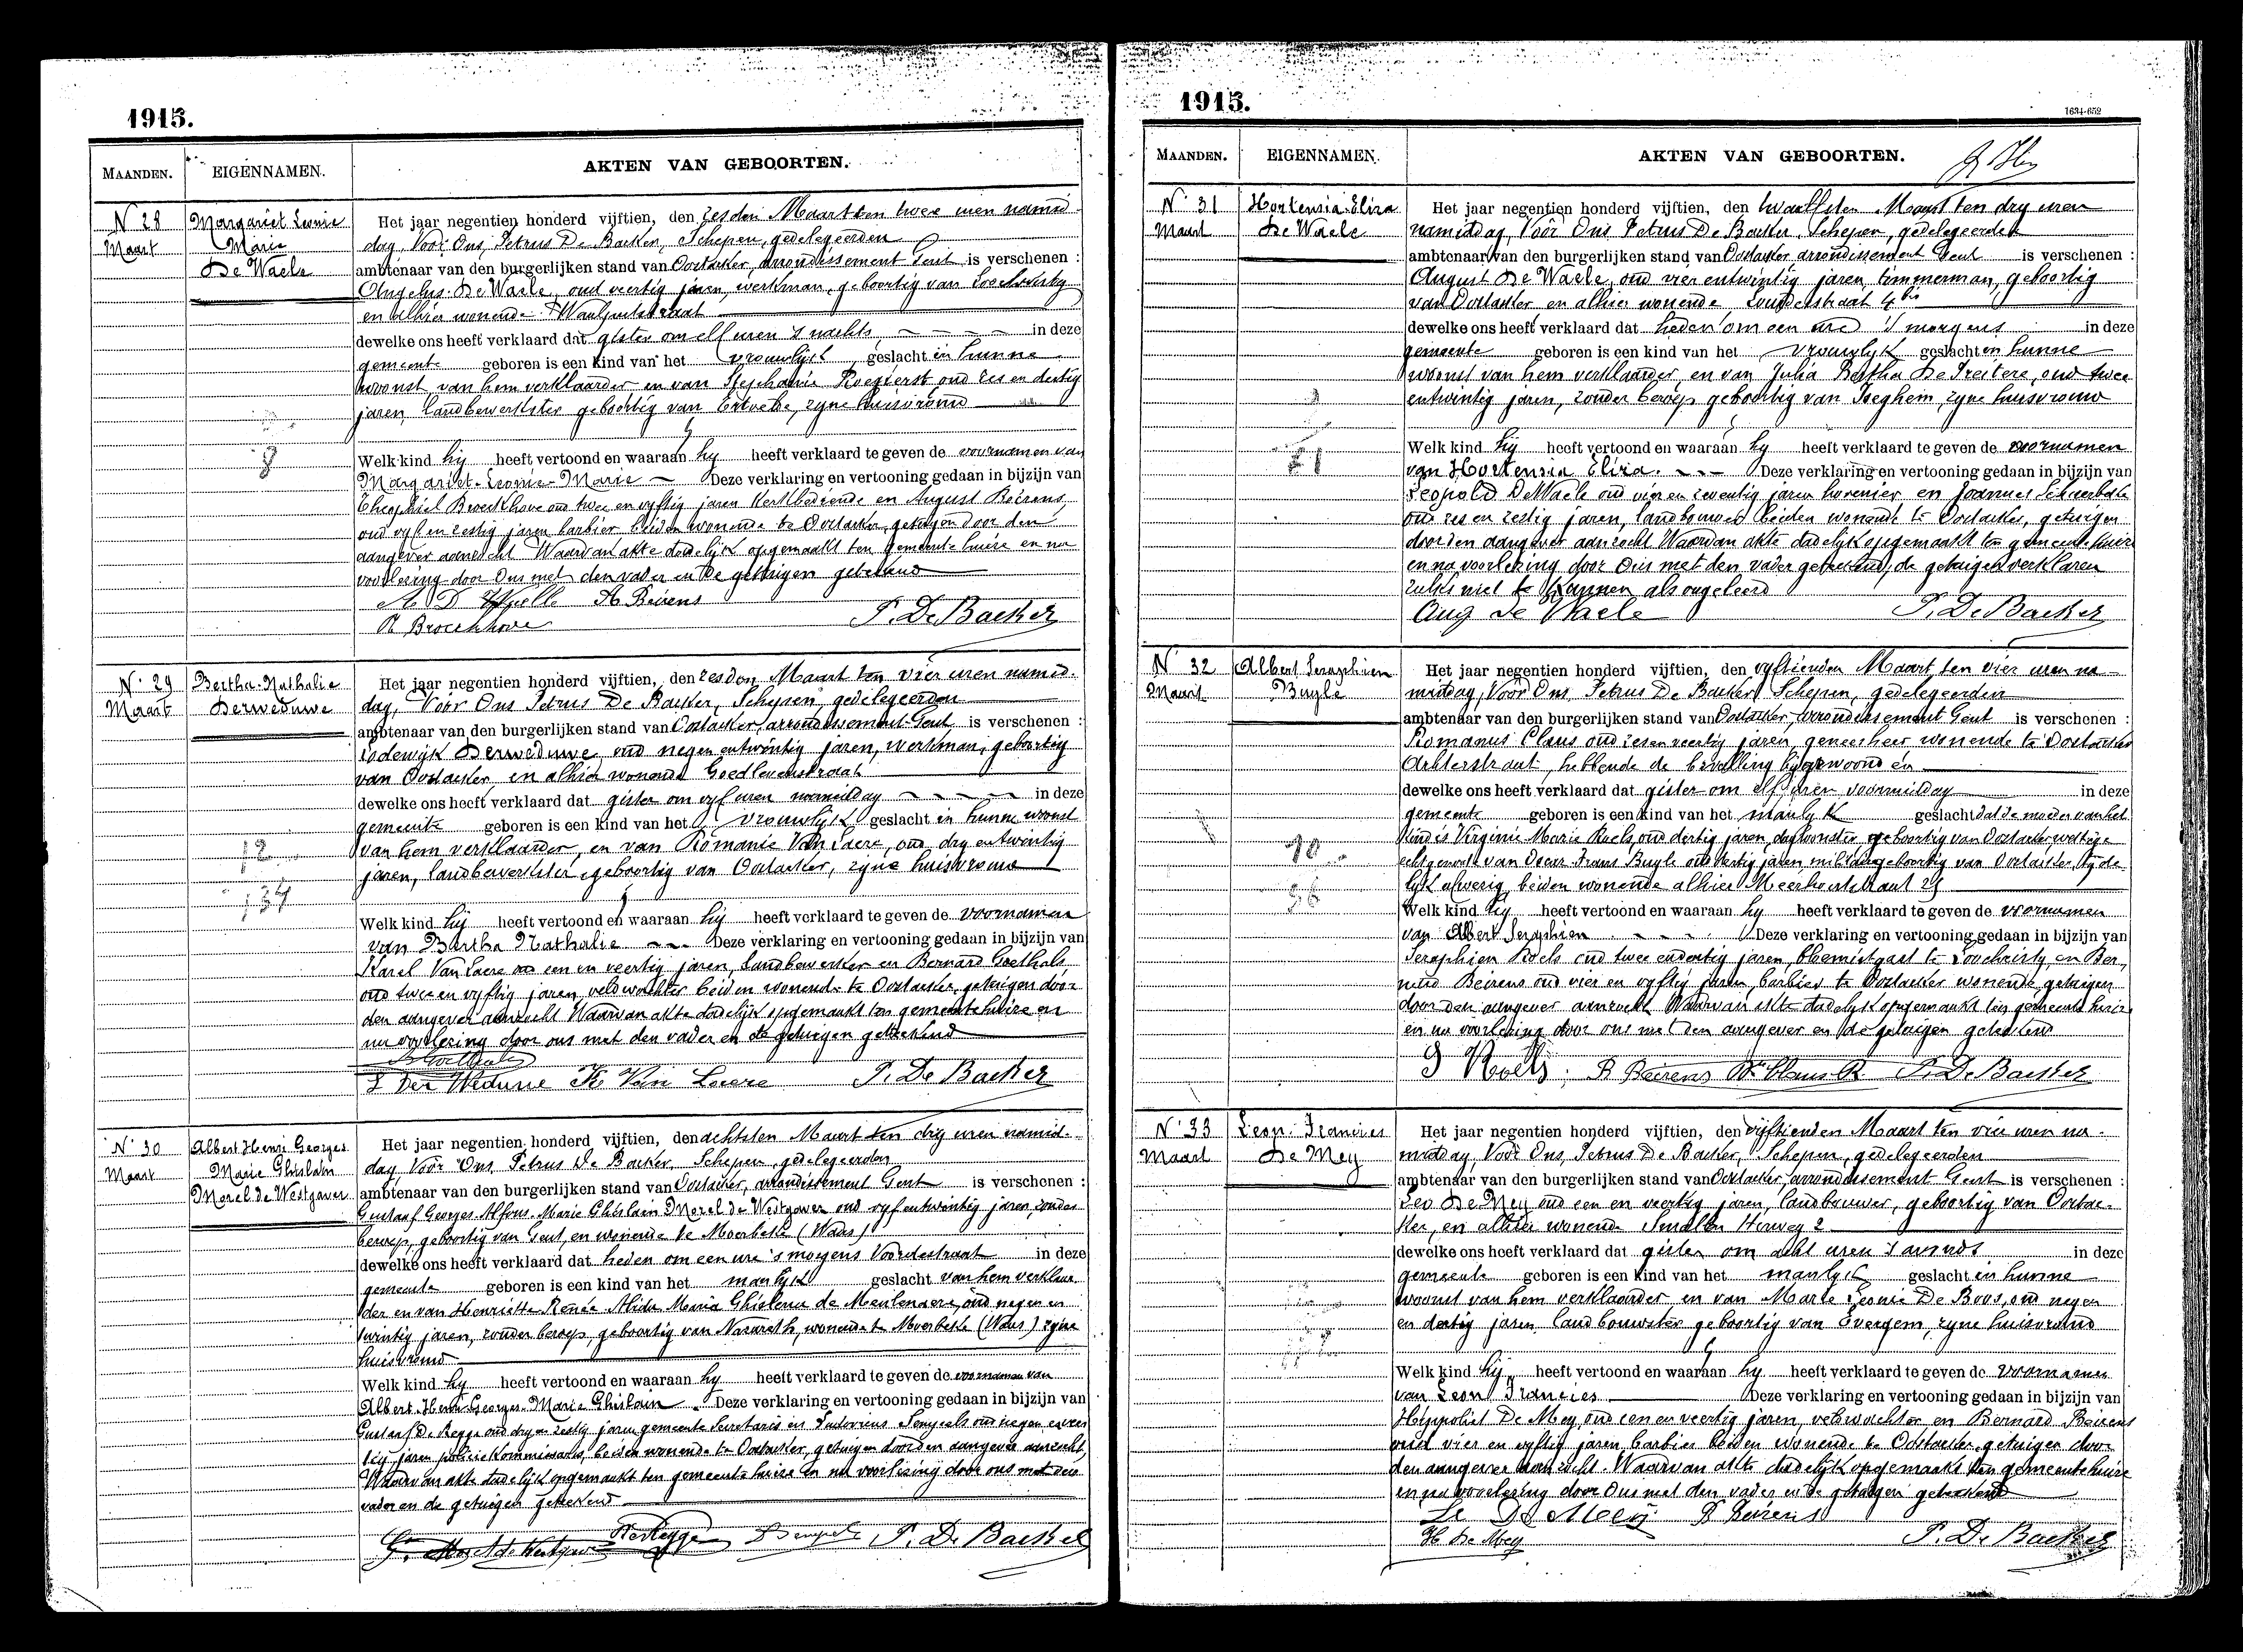 1915.
MAANDEN.
EIGENNAMEN.
AKTEN VAN GEBOORTEN.
N° 28
Maart
Margariet Leonie
Marie
De Waele
Het jaar negentien honderd vijftien, den zesden Maart ten twee uren namid-
dag, Voor Ons, Petrus De Backer, Schepen, gedelegeerden
ambtenaar van den burgerlijken stand van Oostacker, arrondissement Gent is verschenen :
Angelus De Waele, oud veertig jaren, werkman, geboortig van Loochristy
en alhier wonende
dewelke ons heeft verklaard dat gister om elf uren 's nachts, in deze
gemeente geboren is een kind van het vrouwlijk geslacht in hunne
woonst van hem verklaarder en van Stephanie oud zes en dertig
jaren, landbewerkster geboortig van Ertvelde, zyne huisvrouw
Welk kind hij heeft vertoond en waaraan hy heeft verklaard te geven de voornamen van
Margariet-Leonie-Marie — Deze verklaring en vertooning gedaan in bijzijn van
Theophiel Broeckhove oud twee en vyftig jaren kerkbediende en August Beirens,
oud vyf en zestig jaren barbier beiden wonende te Oostacker, getuigen door den
aangever aanzocht Waarvan akte dadelijk opgemaakt ten gemeentehuize en na
voorlezing door Ons met den vader en de getuigen geteekend
A. D. Waelle A Beirens
Broeckhove P. De Backer
N° 29
Maart
Bertha-Nathalie
Derweduwe
Het jaar negentien honderd vijftien, den zesden Maart ten vier uren namid-
dag, Voor Ons Petrus De Backer, Schepen, gedelegeerden
ambtenaar van den burgerlijken stand van Oostacker, arrondissement Gent is verschenen :
Lodewijk Derweduwe oud negen entwintig jaren, werkman, geboortig
van Oostacker, en alhier wonende Goedlevenstraat
dewelke ons heeft verklaard dat gister om vyf uren namiddag in deze
gemeente geboren is een kind van het vrouwlijk geslacht in hunne woonst
van hem verklaarder, en van Romanie Van Laere, oud dry entwintig
jaren, landbewerkster geboortig van Oostacker, zyne huisvrouw
12
137
Welk kind hij heeft vertoond en waaraan hij heeft verklaard te geven de voornamen
van Bertha Nathalie — Deze verklaring en vertooning gedaan in bijzijn van
Karel Van Laere oud een en veertig jaren, landbewerker en Bernard Goethals
oud twee en vyftig jaren veldwachter beiden wonende te Oostacker, getuigen door
den aangever aanzocht Waarvan akte dadelijk opgemaakt ten gemeentehuize en
na voorlezing door ons met den vader en de getuigen geteekend
B Goethals
L Der Weduwe K Van Laere P. De Backer
N° 30
Maart
Albert Henri Georges
Marie Ghislain
Morel de Westgaver
Het jaar negentien honderd vijftien, den achtsten Maart ten dry uren namid-
dag Voor Ons, Petrus De Backer, Schepen, gedelegeerden
ambtenaar van den burgerlijken stand van Oostacker, arrondissement Gent is verschenen :
Gustaaf Georges Alfons Marie Ghislain Morel de Westgaver oud vyf entwintig jaren, zonder
beroep, geboortig van Gent, en wonende te Moerbeke (Waas)
dewelke ons heeft verklaard dat heden om een ure 's morgens Voordestraat in deze
gemeente geboren is een kind van het manlijk geslacht van hem verklaar-
der en van Henriette Renée Alida Maria Ghislena de Meulenaere, oud negen en
twintig jaren, zonder beroep, geboortig van Nazareth, wonende te Moerbeke (Waas) zyne
huisvrouw
Welk kind hy heeft vertoond en waaraan hy heeft verklaard te geven de voornamen van
Albert-Henri-Georges-Marie Ghislain. Deze verklaring en vertooning gedaan in bijzijn van
Gustaaf De oud dry en zestig jaren gemeente Secretaris en Ludovicus oud negen en veer
tig jaren policie Kommissaris, beiden wonende te Oostacker, getuigen door den aangever aanzocht,
Waarvan akte dadelijk opgemaakt ten gemeentehuize en na voorlezing door ons met den
vader en de getuigen geteekend
G. Morel de Westgaver P. De Backer
1915.
1634-652
MAANDEN.
EIGENNAMEN.
AKTEN VAN GEBOORTEN.
N° 31
Maart
Hortensia Eliza
De Waele
Het jaar negentien honderd vijftien, den twaalfsten Maart ten dry uren
namiddag, Voor Ons Petrus De Backer, Schepen, gedelegeerden
ambtenaar van den burgerlijken stand van Oostacker arrondissement Gent is verschenen :
August De Waele, oud vier entwintig jaren, timmerman, geboortig
van Oostacker en alhier wonende,
dewelke ons heeft verklaard dat heden om een ure 's morgens in deze
gemeente geboren is een kind van het vrouwlyk geslacht en hunne
woonst van hem verklaarder, en van Julia Bertha De Freitere, oud twee
entwintig jaren, zonder beroep geboortig van Iseghem, zyne huisvrouw
Welk kind hij heeft vertoond en waaraan hy heeft verklaard te geven de voornamen
van Hortensia Eliza. Deze verklaring en vertooning gedaan in bijzijn van
Leopold De Waele oud vier en zeventig jaren hovenier en Joannes
oud zes en zestig jaren, landbouwer beiden wonende te Oostacker, getuigen
door den aangever aanzocht Waarvan akte dadelijk opgemaakt ten gemeentehuize
en na voorlezing door Ons met den vader geteekend, de getuigen verklaren
zulks niet te kunnen als ongeleerd
Aug De Waele P. De Backer
N° 32
Maart
Albert Seraphien
Buyle
Het jaar negentien honderd vijftien, den vyftienden Maart ten vier uren na-
middag, Voor Ons, Petrus De Backer, Schepen, gedelegeerden
ambtenaar van den burgerlijken stand van Oostacker, arrondissement Gent is verschenen :
Romanus Claus oud zes en veertig jaren, geneesheer wonende te Oostacker
Achterstraat, hebbende de bevalling bygewoond en
dewelke ons heeft verklaard dat gister om elf uren voormiddag in deze
gemeente geboren is een kind van het manlyk geslacht dat de moeder van het
kind is Virginie Marie Roels, oud dertig jaren, dagloonster, geboortig van Oostacker wettige
echtgenoote van Oscar Frans Buyle oud dertig jaren, militair geboortig van Oostacker, tyde-
lyk afwezig, beiden wonende alhier Meerhoutstraat 29
Welk kind hy heeft vertoond en waaraan hy heeft verklaard te geven de voornamen
van Albert Seraphien Deze verklaring en vertooning gedaan in bijzijn van
Seraphien Roels oud twee endertig jaren, bloemistgast te Loochristy, en Ber-
nard Beirens oud vier en vyftig jaren barbier te Oostacker wonende, getuigen
door den aangever aanzocht Waarvan akte dadelyk opgemaakt ten gemeentehuize
en na voorlezing door ons met den aangever en de getuigen geteekend
S Roels. B Beirens Dr Claus R P. De Backer
N° 33
Maart
Leon Francies
De Mey
Het jaar negentien honderd vijftien, den vijftienden Maart ten vier uren na-
middag, Voor Ons, Petrus De Backer, Schepen, gedelegeerden
ambtenaar van den burgerlijken stand van Oostacker, arrondissement Gent is verschenen :
Leo De Mey oud een en veertig jaren, landbouwer, geboortig van Oostac-
ker, en alhier wonende Smalle Heirweg 2
dewelke ons heeft verklaard dat gister om acht uren 's avonds in deze
gemeente geboren is een kind van het manlyk geslacht in hunne
woonst van hem verklaarder en van Marie Leonie De Boos, oud negen
en dertig jaren landbouwster geboortig van Evergem, zyne huisvrouw
Welk kind hij heeft vertoond en waaraan hy heeft verklaard te geven de voornamen
van Leon Francies Deze verklaring en vertooning gedaan in bijzijn van
Hyppoliet De Mey, oud een en veertig jaren, veldwachter en Bernard Beirens
oud vier en vyftig jaren, barbier beiden wonende te Oostacker, getuigen door
den aangever aanzocht. Waarvan akte dadelyk opgemaakt ten gemeentehuize
en na voorlezing door Ons met den vader en de getuigen geteekend
Le De Meey B Beirens
H De Mey P. De Backer